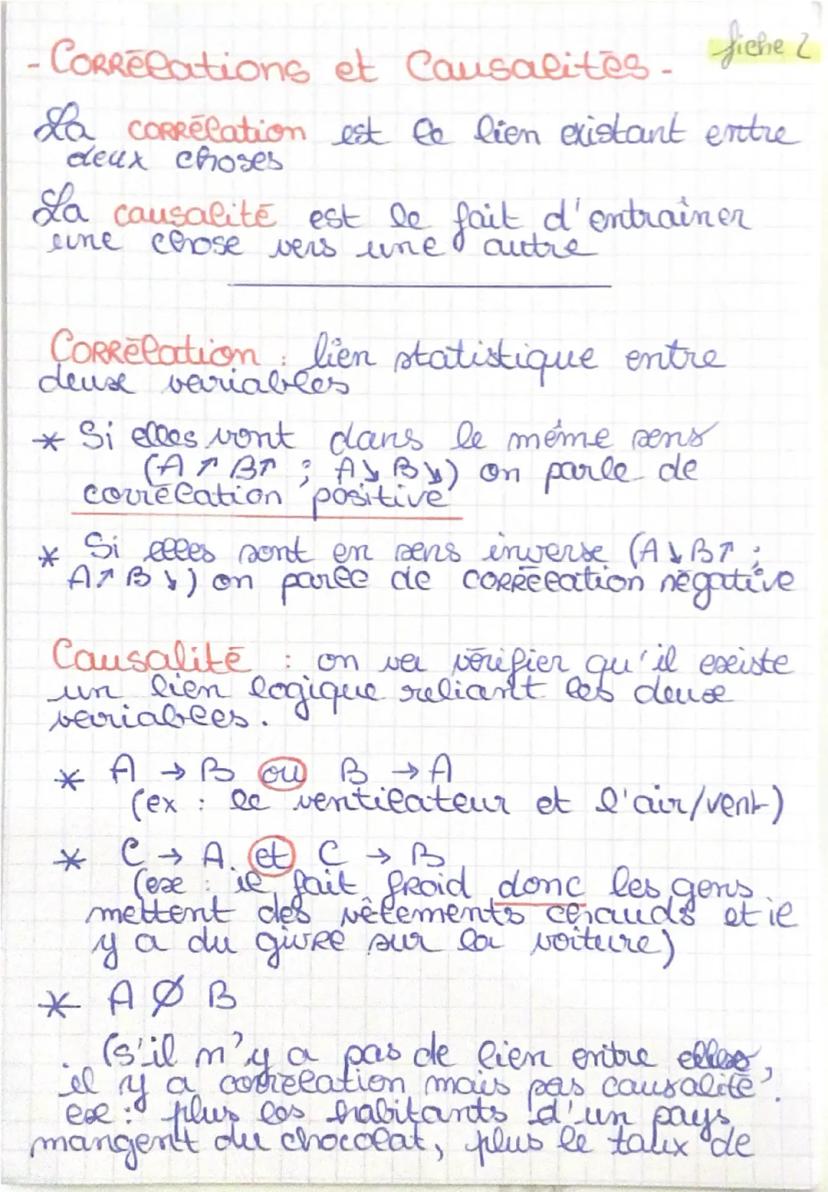 fiche 2
- Corrélations et Causalités -
La corrélation est le lien existant entre
deux choses
La causalité est le fait d'entraîner
une chose vers une autre
Corrélation : lien statistique entre
deux variables
* Si elles vont dans le même sens
(A ↗ B↗ ; A↘ B↘) on parle de
corrélation positive
* Si elles sont en sens inverse (A↘B↗ ;
A↗ B↘) on parle de corrélation négative
Causalité : on va vérifier qu'il existe
un lien logique reliant les deux
variables.
* A → B ou B → A
(ex : le ventilateur et l'air/vent)
* C → A et C → B
(ex : il fait froid donc les gens
mettent des vêtements chauds et il
y a du givre sur la voiture)
* A Ø B
(s'il n'y a pas de lien entre elles,
il y a corrélation mais pas causalité.
ex : plus les habitants d'un pays
mangent du chocolat, plus le taux de